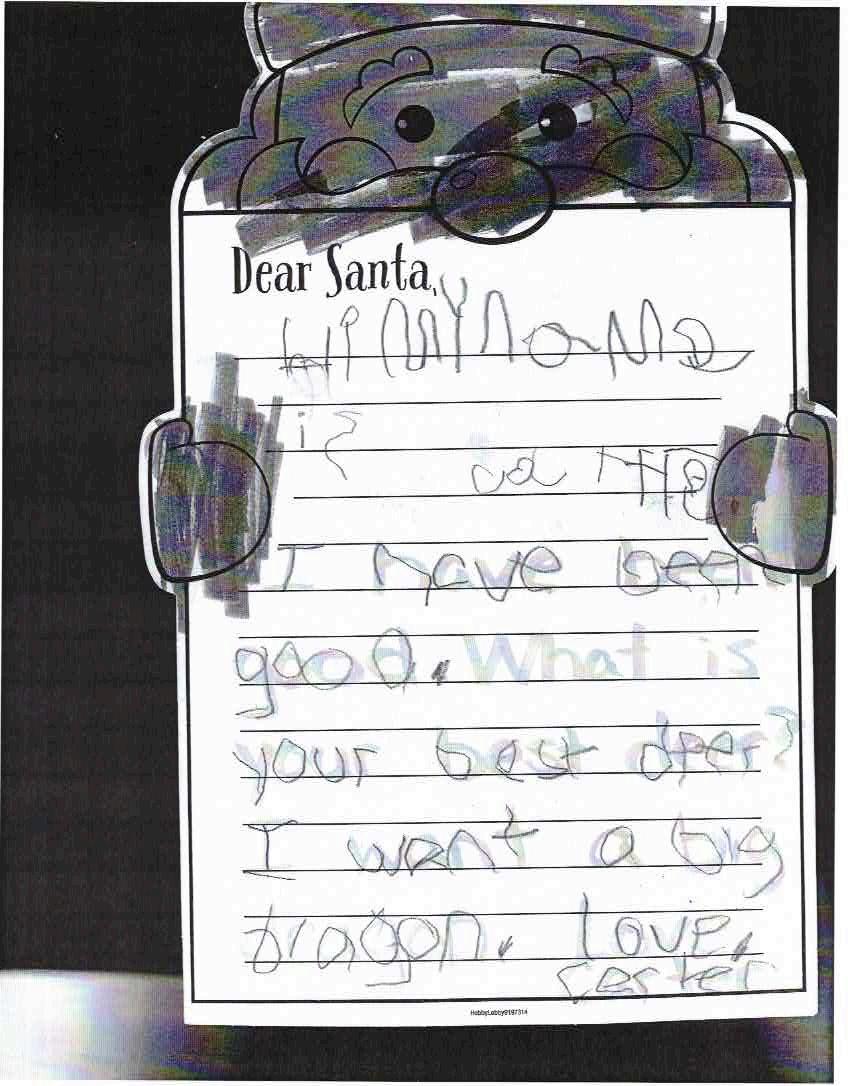 Dear Santa,
Hi MY NaMe
is
I have been
good. What is
your best deer?
I want a big
dragon. Love,
carter
HobbyLobby9197314